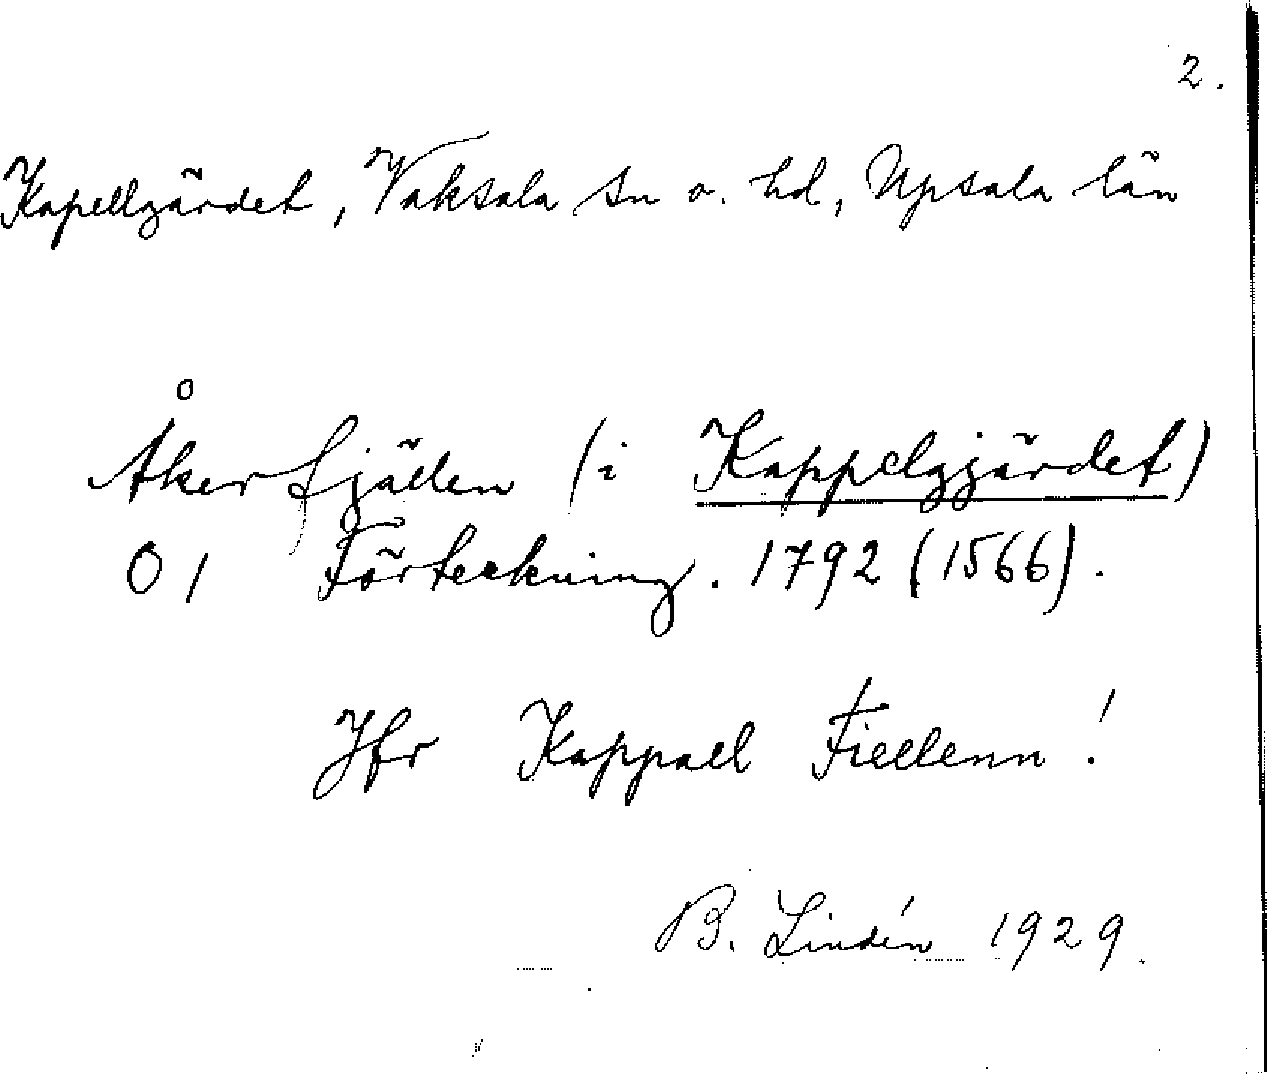 2.
Kapellgärdet, Vaksala sn o. hd, Upsala län
Åkerfjällen (i Kappelgjärdet)
O 1 Förteckning. 1792 (1566).
Jfr Kappall Fiellenn!
B. Lindén 1929.